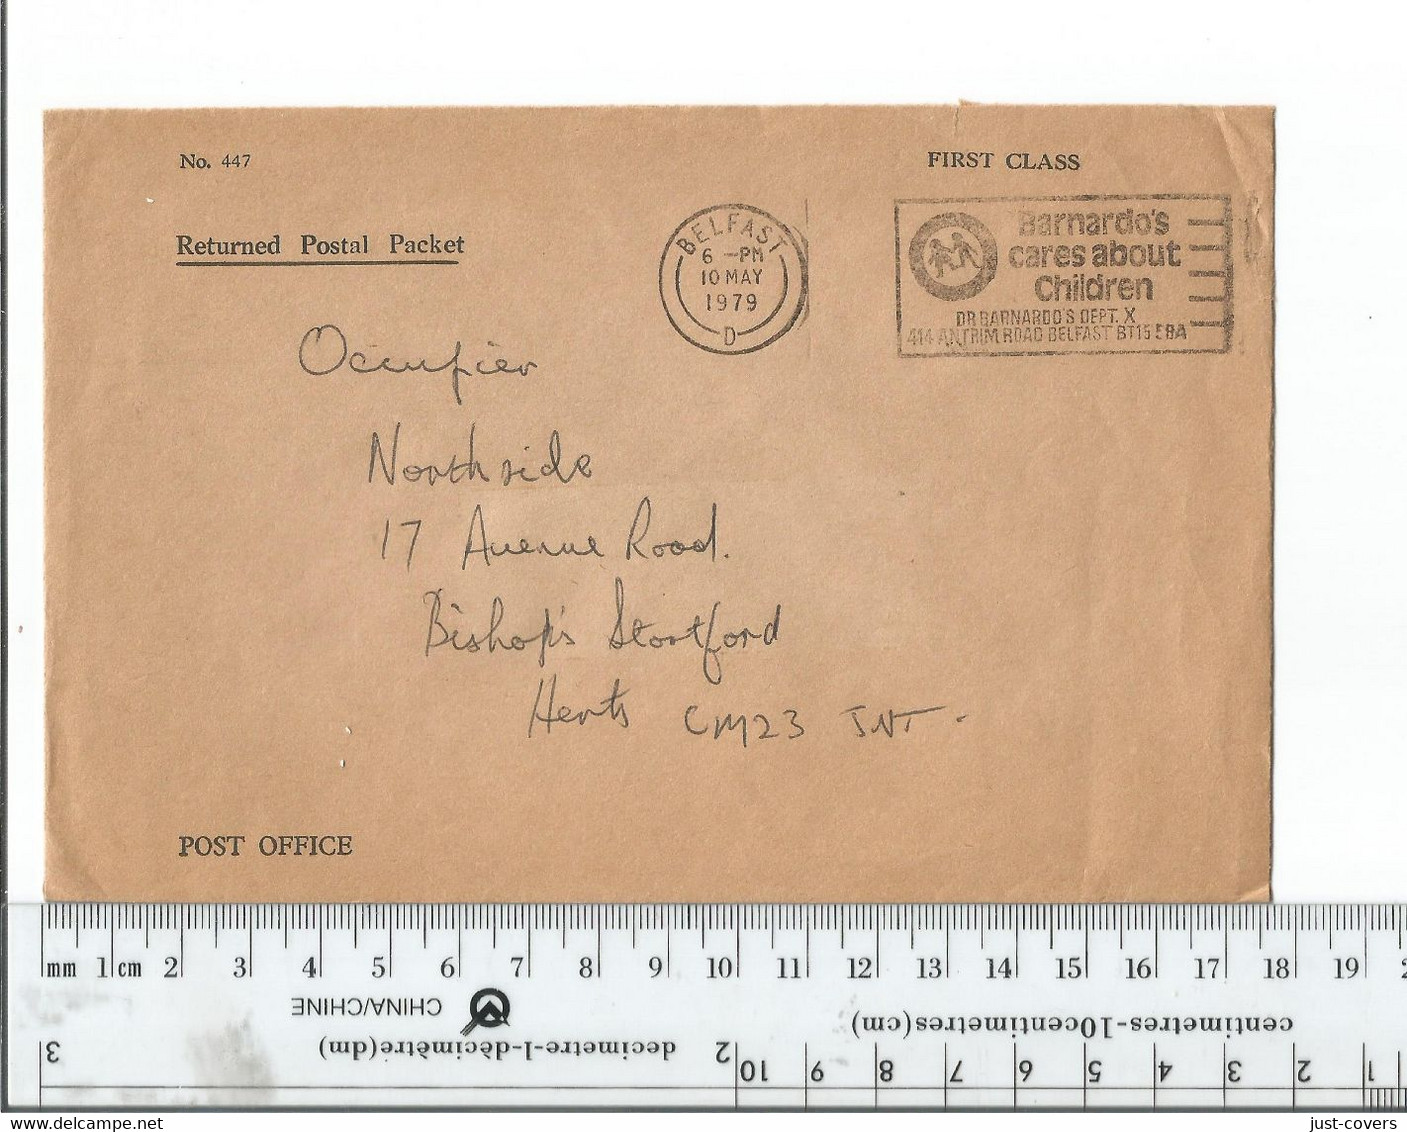 No. 447
FIRST CLASS
Returned Postal Packet
BELFAST
6 -PM
10 MAY
1979
D
Barnardo's
cares about
Children
DR BARNARDO'S DEPT. X
414 ANTRIM ROAD BELFAST BT15
Occupier
Northside
17 Avenue Road.
Bishop's Stortford
Herts CM23
POST OFFICE
mm 1 cm 2 3 4 5 6 7 8 9 10 11 12 13 14 15 16 17 18 19
CHINA/CHINE
centimetres-10centimetres(cm)
decimetre-1-décimètre(dm)
3 2
10 9 8 7 6 5 4 3 2 1
www.delcampe.net
just-covers